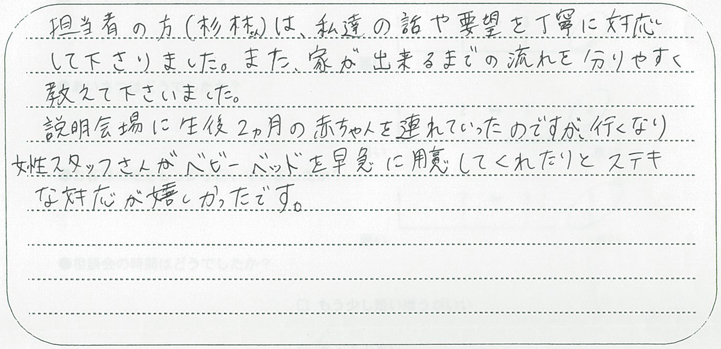 担当者の方(杉林さん)は、私達の話や要望を丁寧に対応
して下さりました。また、家が出来るまでの流れを分りやすく
教えて下さいました。
説明会場に生後2ヵ月の赤ちゃんを連れていったのですが、行くなり
女性スタッフさんがベビーベッドを早急に用意してくれたりとステキ
な対応が嬉しかったです。